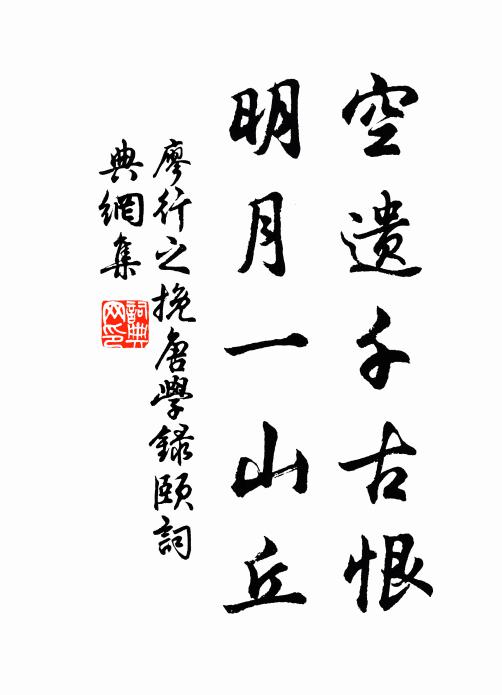 空遺千古恨
明月一山丘
廖行之挽唐學錄頤詞
典網集
詞典
网印